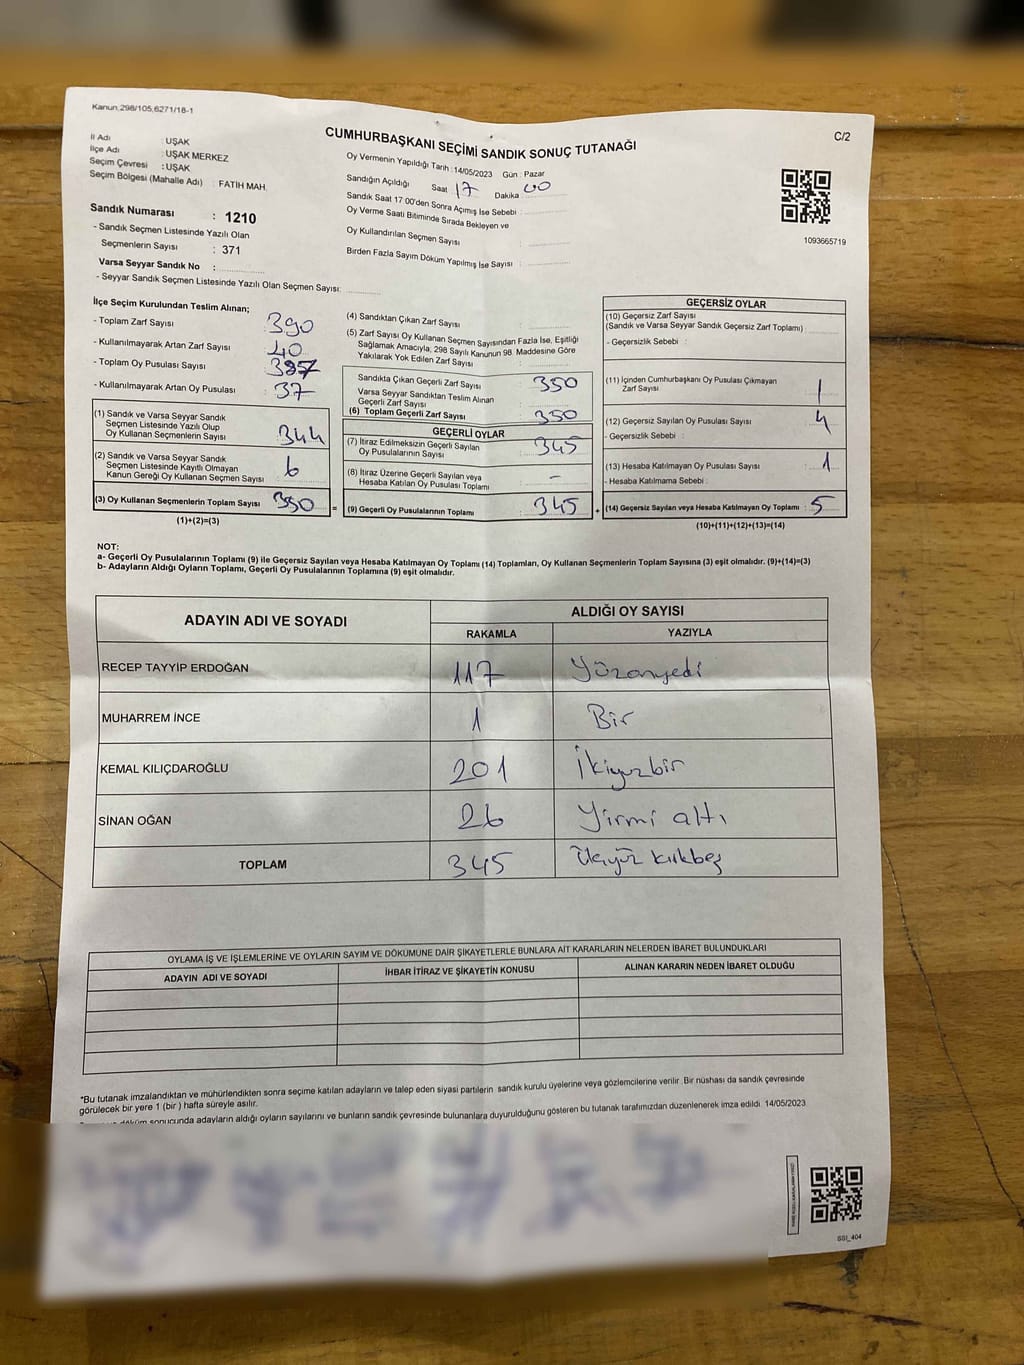 Kanun,298/105,6271/18-1
C/2
CUMHURBAŞKANI SEÇİMİ SANDIK SONUÇ TUTANAĞI
İl Adı : UŞAK
İlçe Adı : UŞAK MERKEZ
Seçim Çevresi : UŞAK
Seçim Bölgesi (Mahalle Adı) : FATİH MAH.
Sandık Numarası : 1210
- Sandık Seçmen Listesinde Yazılı Olan
Seçmenlerin Sayısı : 371
Varsa Seyyar Sandık No :
- Seyyar Sandık Seçmen Listesinde Yazılı Olan Seçmen Sayısı:
Oy Vermenin Yapıldığı Tarih : 14/05/2023 Gün : Pazar
Sandığın Açıldığı Saat 17 Dakika 00
Sandık Saat 17 00'den Sonra Açımış İse Sebebi :
Oy Verme Saati Bitiminde Sırada Bekleyen ve
Oy Kullandırılan Seçmen Sayısı :
Birden Fazla Sayım Döküm Yapılmış İse Sayısı :
1093665719
İlçe Seçim Kurulundan Teslim Alınan;
- Toplam Zarf Sayısı : 390
- Kullanılmayarak Artan Zarf Sayısı : 40
- Toplam Oy Pusulası Sayısı : 387
- Kullanılmayarak Artan Oy Pusulası : 37
(1) Sandık ve Varsa Seyyar Sandık
Seçmen Listesinde Yazılı Olup
Oy Kullanan Seçmenlerin Sayısı : 344
(2) Sandık ve Varsa Seyyar Sandık
Seçmen Listesinde Kayıtlı Olmayan
Kanun Gereği Oy Kullanan Seçmen Sayısı : 6
(3) Oy Kullanan Seçmenlerin Toplam Sayısı : 350
(1)+(2)=(3)
(4) Sandıktan Çıkan Zarf Sayısı :
(5) Zarf Sayısı Oy Kullanan Seçmen Sayısından Fazla İse, Eşitliği
Sağlamak Amacıyla; 298 Sayılı Kanunun 98. Maddesine Göre
Yakılarak Yok Edilen Zarf Sayısı :
Sandıkta Çıkan Geçerli Zarf Sayısı : 350
Varsa Seyyar Sandıktan Teslim Alınan
Geçerli Zarf Sayısı :
(6) Toplam Geçerli Zarf Sayısı : 350
GEÇERLİ OYLAR
(7) İtiraz Edilmeksizin Geçerli Sayılan
Oy Pusulalarının Sayısı : 345
(8) İtiraz Üzerine Geçerli Sayılan veya
Hesaba Katılan Oy Pusulası Toplamı : -
= (9) Geçerli Oy Pusulalarının Toplamı : 345
GEÇERSİZ OYLAR
(10) Geçersiz Zarf Sayısı
(Sandık ve Varsa Seyyar Sandık Geçersiz Zarf Toplamı) :
- Geçersizlik Sebebi :
(11) İçinden Cumhurbaşkanı Oy Pusulası Çıkmayan
Zarf Sayısı : 1
(12) Geçersiz Sayılan Oy Pusulası Sayısı : 4
- Geçersizlik Sebebi :
(13) Hesaba Katılmayan Oy Pusulası Sayısı : 1
- Hesaba Katılmama Sebebi :
+ (14) Geçersiz Sayılan veya Hesaba Katılmayan Oy Toplamı : 5
(10)+(11)+(12)+(13)=(14)
NOT:
a- Geçerli Oy Pusulalarının Toplamı (9) ile Geçersiz Sayılan veya Hesaba Katılmayan Oy Toplamı (14) Toplamları, Oy Kullanan Seçmenlerin Toplam Sayısına (3) eşit olmalıdır. (9)+(14)=(3)
b- Adayların Aldığı Oyların Toplamı, Geçerli Oy Pusulalarının Toplamına (9) eşit olmalıdır.
ADAYIN ADI VE SOYADI
ALDIĞI OY SAYISI
RAKAMLA YAZIYLA
RECEP TAYYİP ERDOĞAN 117 Yüzonyedi
MUHARREM İNCE 1 Bir
KEMAL KILIÇDAROĞLU 201 İkiyuzbir
SİNAN OĞAN 26 Yirmi altı
TOPLAM 345 Üçyüz kırkbeş
OYLAMA İŞ VE İŞLEMLERİNE VE OYLARIN SAYIM VE DÖKÜMÜNE DAİR ŞİKAYETLERLE BUNLARA AİT KARARLARIN NELERDEN İBARET BULUNDUKLARI
ADAYIN ADI VE SOYADI İHBAR İTİRAZ VE ŞİKAYETİN KONUSU ALINAN KARARIN NEDEN İBARET OLDUĞU
*Bu tutanak imzalandıktan ve mühürlendikten sonra seçime katılan adayların ve talep eden siyasi partilerin sandık kurulu üyelerine veya gözlemcilerine verilir. Bir nüshası da sandık çevresinde
görülecek bir yere 1 (bir ) hafta süreyle asılır.
döküm sonucunda adayların aldığı oyların sayılarını ve bunların sandık çevresinde bulunanlara duyurulduğunu gösteren bu tutanak tarafımızdan düzenlenerek imza edildi. 14/05/2023
SSI_404